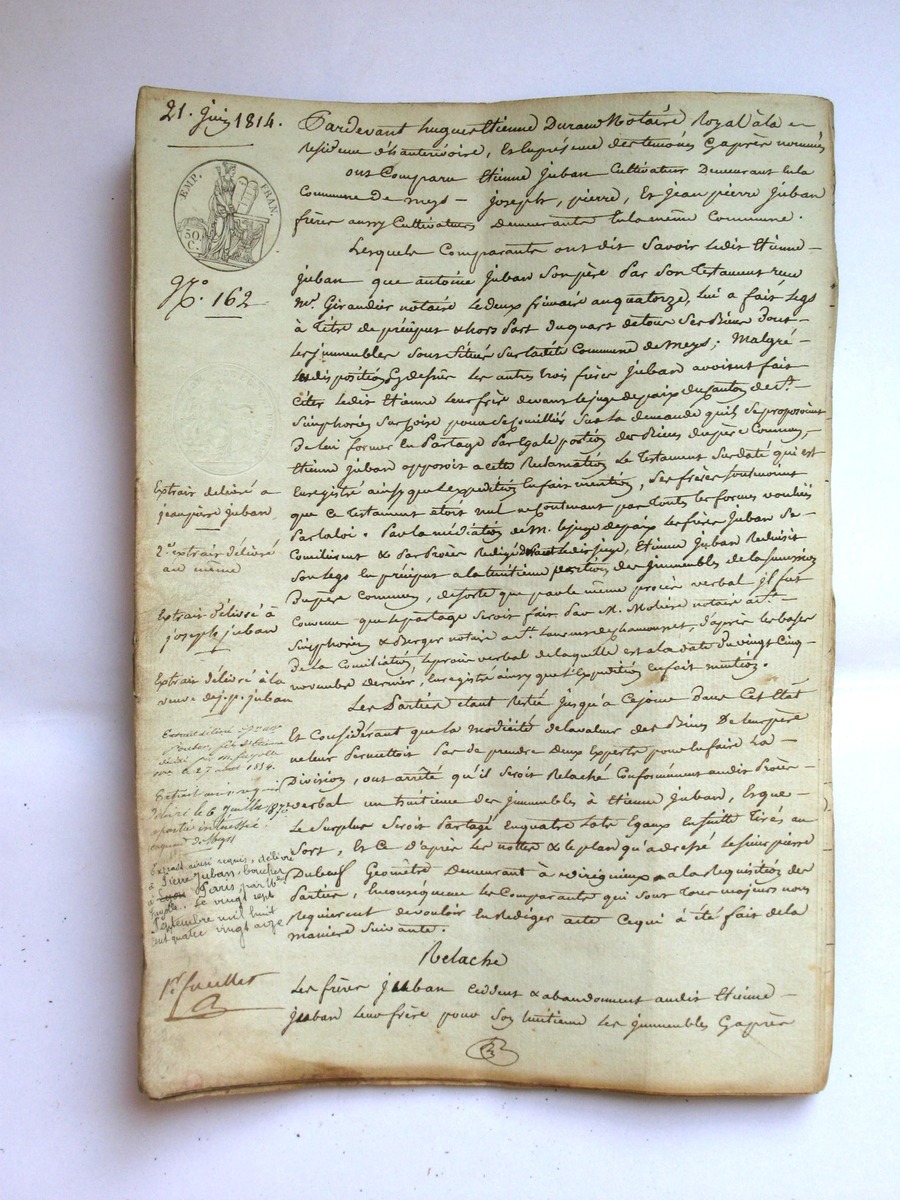 21. Juin 1814.
EMP. FRAN.
50 C.
N.° 162
Extrait délivré a
jeanpierre juban
2e extrait délivré
au même
Extrait délivré à
joseph juban
Extrait délivré à la
veuve de j. p. juban
Extrait ainsi requis, délivré
à Pierre Juban, boucher
à Paris, par Me
le vingt sept
Septembre mil huit
cent quatre vingt
1er feuillet
Pardevant hugues Etienne Durand Notaire Royal à la
Residence d'hauterivoire, Et En présence des temoins Cyaprès nommés
ont Comparu Etienne Juban Cultivateur Demeurant En la
Commune De meys – joseph, pierre, Et jean pierre Juban
frères aussy Cultivateurs Demeurants En la même Commune.
Lesquels Comparants ont dit Savoir Ledit Etienne –
juban que antoine Juban Son père Par Son Testament reçu
Me. Girandier notaire Le deux frimaire an quatorze, lui a fait Legs
à titre de préciput & hors Part Du quart de tous Ses Biens Dont –
Les jmmeubles Sont Situés Sur ladite Commune De Meys; Malgré –
Les dispositions Cy dessus Les autres trois frères juban avoient fait
Citer Ledit Etienne Leur frère devant le juge de paix Du Canton de St. –
Simphorien Sur Coise pour Se Concilier Sur La demande qu'ils Se proposoient
De lui former En Partage Par Egale portion des Biens Du père Commun, –
Etienne Juban opposoit a Cette Reclamation Le Testament Sus daté qui est
Enregistré ainsy que l'expedition En fait mention, Ses frères Soutenoient
que Ce Testament étoit nul ne Contenant pas Toutes les formes voulües
Par la loi. Par la mediation de M. le juge de paix Les frères Juban Se
Concilierent & Par Procès Redigé Devant Ledit juge, Etienne Juban Reduisit
Son Legs En préciput a la huitieme portion des Jmmeubles de la Succession
Du père Commun, de sorte que par le même procès verbal il fut
Convenu que le partage Seroit fait Par M. Moliere notaire a St. –
Simphorien & Berger notaire a St. Laurent de chamousset, D'après les bases
De La Conciliation, le procès verbal de laquelle est a la date Du vingt Cinq –
novembre dernier, Enregistré ainsy que l'Expedition En fait mention.
Les Parties étant Resté jusqu'à Ce jour Dans Cet Etat
Et Considérant que la modicité de la valeur des Biens De leur père
ne leur Permettoit Pas de prendre Deux Experts pour En faire La –
Division, ont arrêté qu'il Seroit Relaché Conformément audit Procès –
verbal un huitieme des jmmeubles à Etienne Juban, Et que –
Le Surplus Seroit Partagé En quatre Lots Egaux Ensuite Tirés au
Sort, Et Ce D'après Les nottes & le plan qu'a adressé Le Sieur pierre
Dubeuf Geomètre Demeurant à Virigneux a la Requisition des
Parties, En consequence Les Comparants qui Sont Tous majeurs nous
Requierent de vouloir En Rediger acte Ce qui à été fait de la
maniere Suivante.
Relache
Les frères Juban Cedent & abandonnent audit Etienne –
Juban Leur frère pour Son huitieme Les jmmeubles Cyaprès